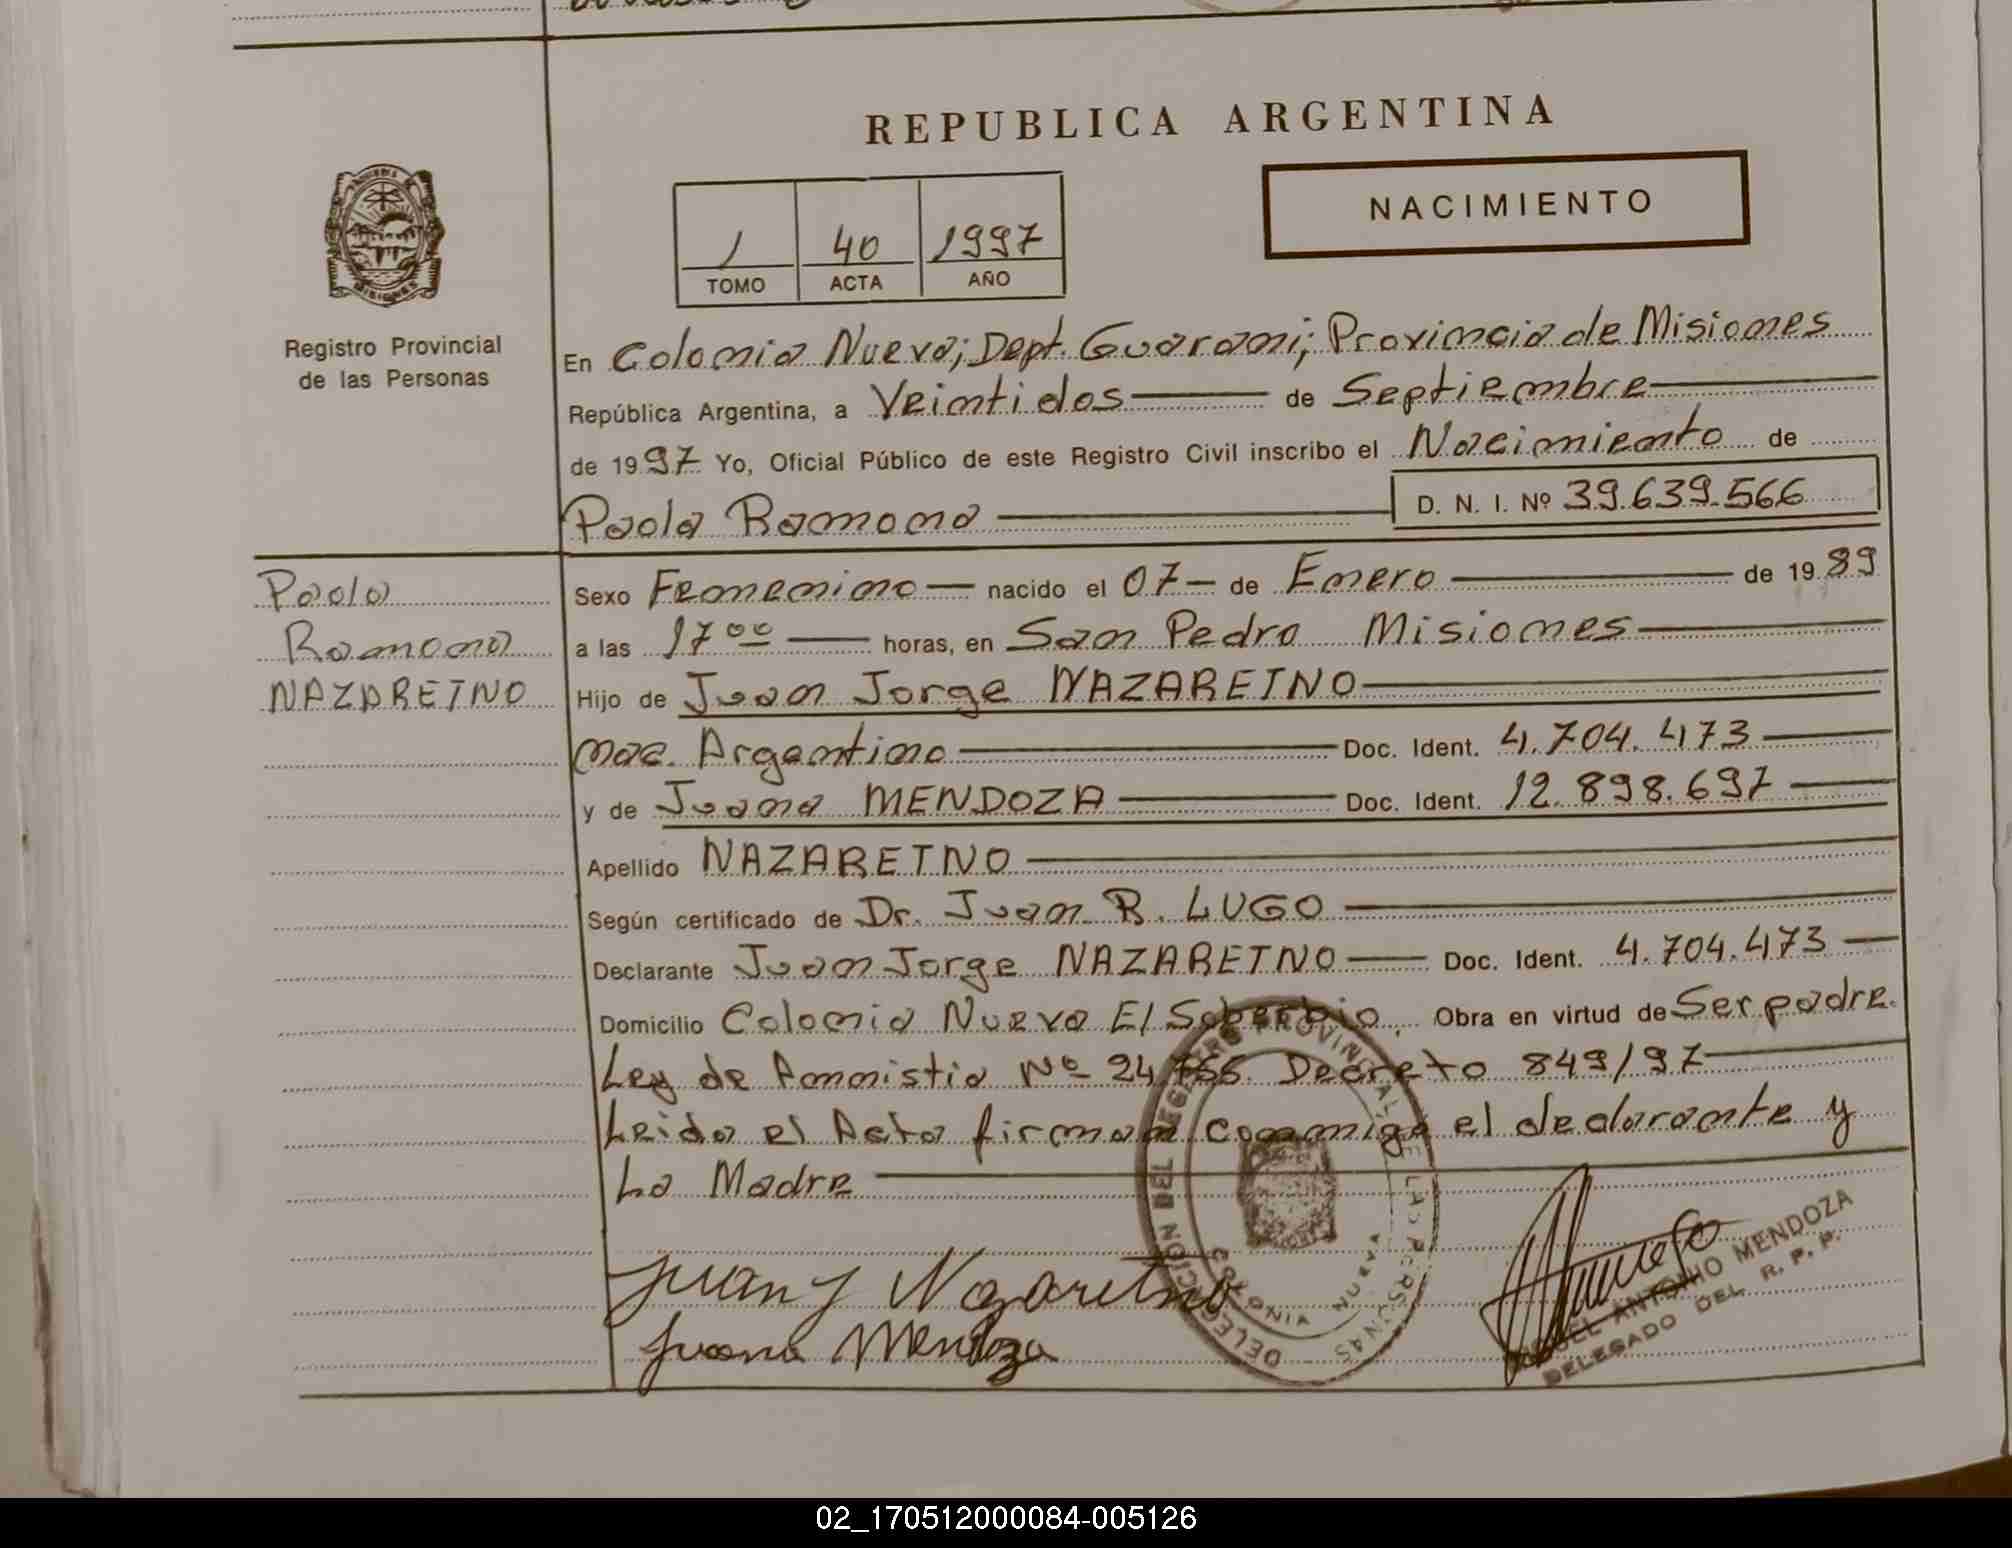 REPUBLICA ARGENTINA
NACIMIENTO
1 40 1997
TOMO ACTA AÑO
Registro Provincial
de las Personas
En Colonia Nueva; Dept. Guarani; Provincia de Misiones
República Argentina, a Veintidos de Septiembre
de 1997 Yo, Oficial Público de este Registro Civil inscribo el Nacimiento de
Paola Ramona D. N. I. Nº 39.639.566
Paola
Ramona
NAZARETNO
Sexo Femenino nacido el 07 de Enero de 1989
a las 17 00 horas, en San Pedro Misiones
Hijo de Juan Jorge NAZARETNO
nac. Argentino Doc. Ident. 4.704.473
y de Juana MENDOZA Doc. Ident. 12.898.697
Apellido NAZARETNO
Según certificado de Dr. Juan R. LUGO
Declarante Juan Jorge NAZARETNO Doc. Ident. 4.704.473
Domicilio Colonia Nueva El Soberbio, Obra en virtud de Ser padre.
Ley de Amnistia Nº 24.755 Decreto 849/97
Leida el Acta firman conmigo el declarante y
La Madre
Juan J Nazaretno
Juana Mendoza
DELEGACION DEL REGISTRO PROVINCIAL DE LAS PERSONAS
ANTONIO MENDOZA
DELEGADO DEL R. P. P.
02_170512000084-005126